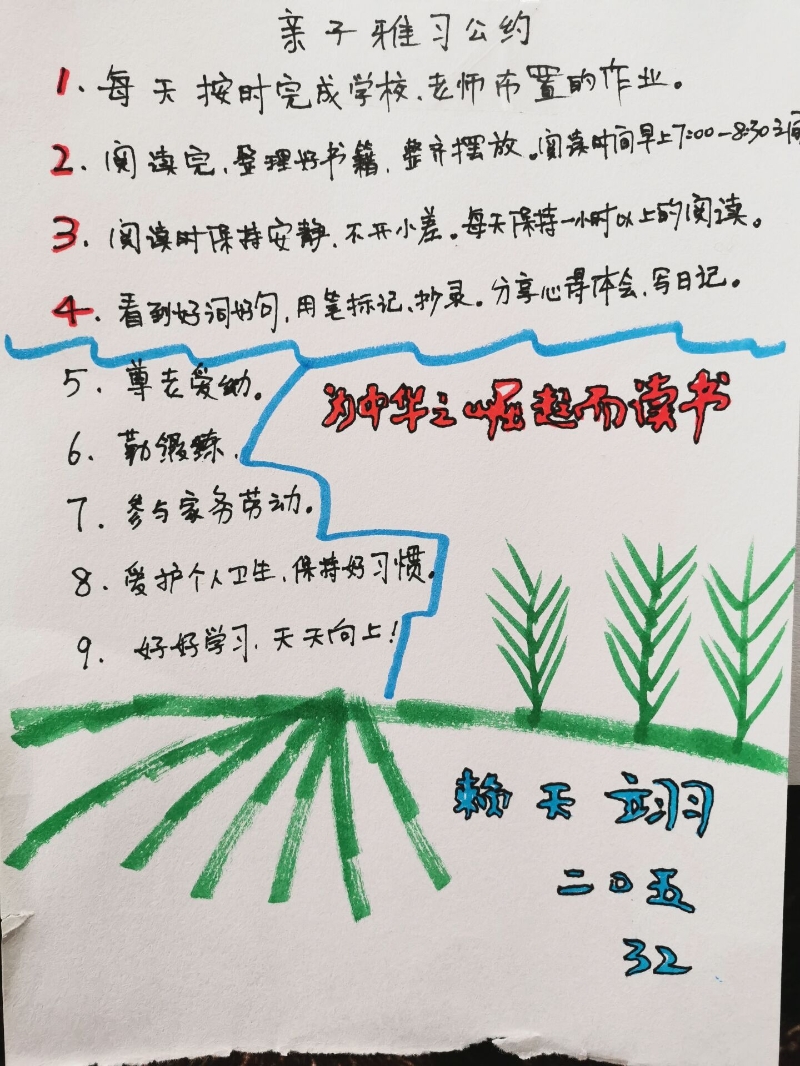 亲子雅习公约
1、每天按时完成学校、老师布置的作业。
2、阅读完、整理好书籍,整齐摆放。阅读时间早上7:00-8:30之间
3、阅读时保持安静,不开小差。每天保持一小时以上的阅读。
4、看到好词好句,用笔标记、抄录。分享心得体会,写日记。
5、尊老爱幼。
6、勤锻炼、
7、参与家务劳动。
8、爱护个人卫生、保持好习惯。
9、好好学习、天天向上!
为中华之崛起而读书
赖天翊
二0五
32